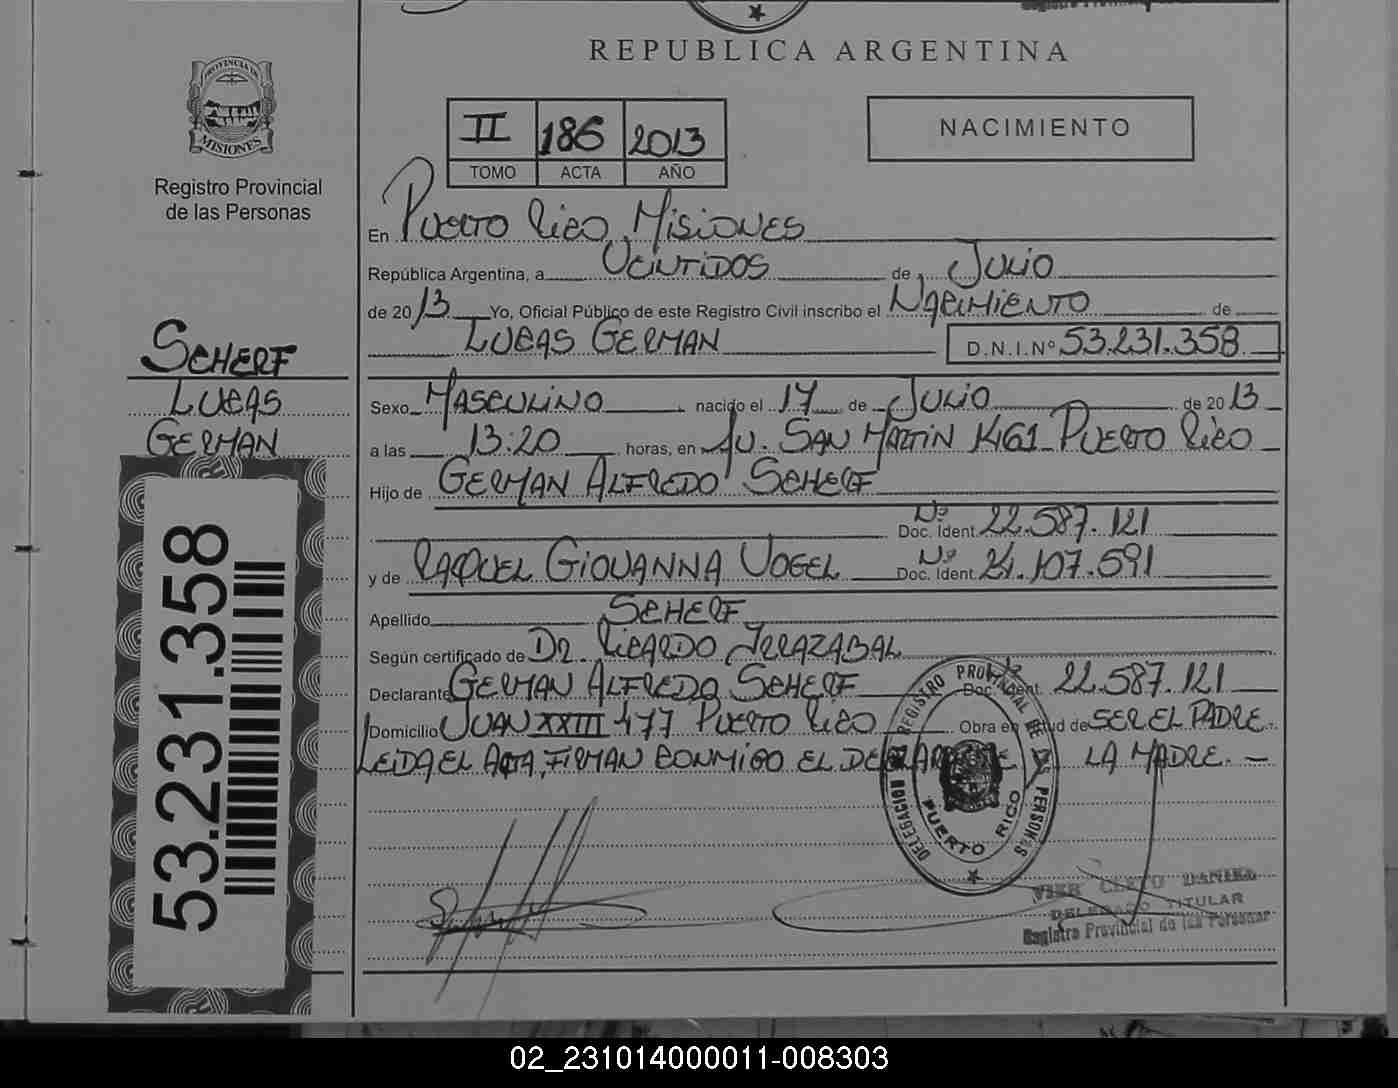 REPUBLICA ARGENTINA
PROVINCIA DE
MISIONES
Registro Provincial
de las Personas
II 186 2013
TOMO ACTA AÑO
NACIMIENTO
En Puerto Rico, Misiones
República Argentina, a Veintidos de Julio
de 2013 Yo, Oficial Público de este Registro Civil inscribo el Nacimiento de
Lucas German D.N.I.Nº 53.231.358
Scherf
Lucas
German
Sexo Masculino nacido el 17 de Julio de 2013
a las 13:20 horas, en Av. San Martin 1461 Puerto Rico
Hijo de German Alfredo Scherf
Doc. Ident. Nº 22.587.121
y de Raquel Giovanna Vogel Doc. Ident. Nº 21.107.591
Apellido Scherf
Según certificado de Dr. Ricardo Irrazabal
Declarante German Alfredo Scherf Doc. Ident. 22.587.121
Domicilio Juan XXIII 477 Puerto Rico Obra en virtud de SER EL PADRE.
Leida el Acta, firman conmigo el declarante y la madre. —
53.231.358
REGISTRO PROVINCIAL DE LAS PERSONAS
DELEGACION
PUERTO RICO
CLETO DANIEL
DELEGADO TITULAR
Registro Provincial de las Personas
02_231014000011-008303